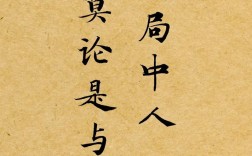 局中人
莫论是与